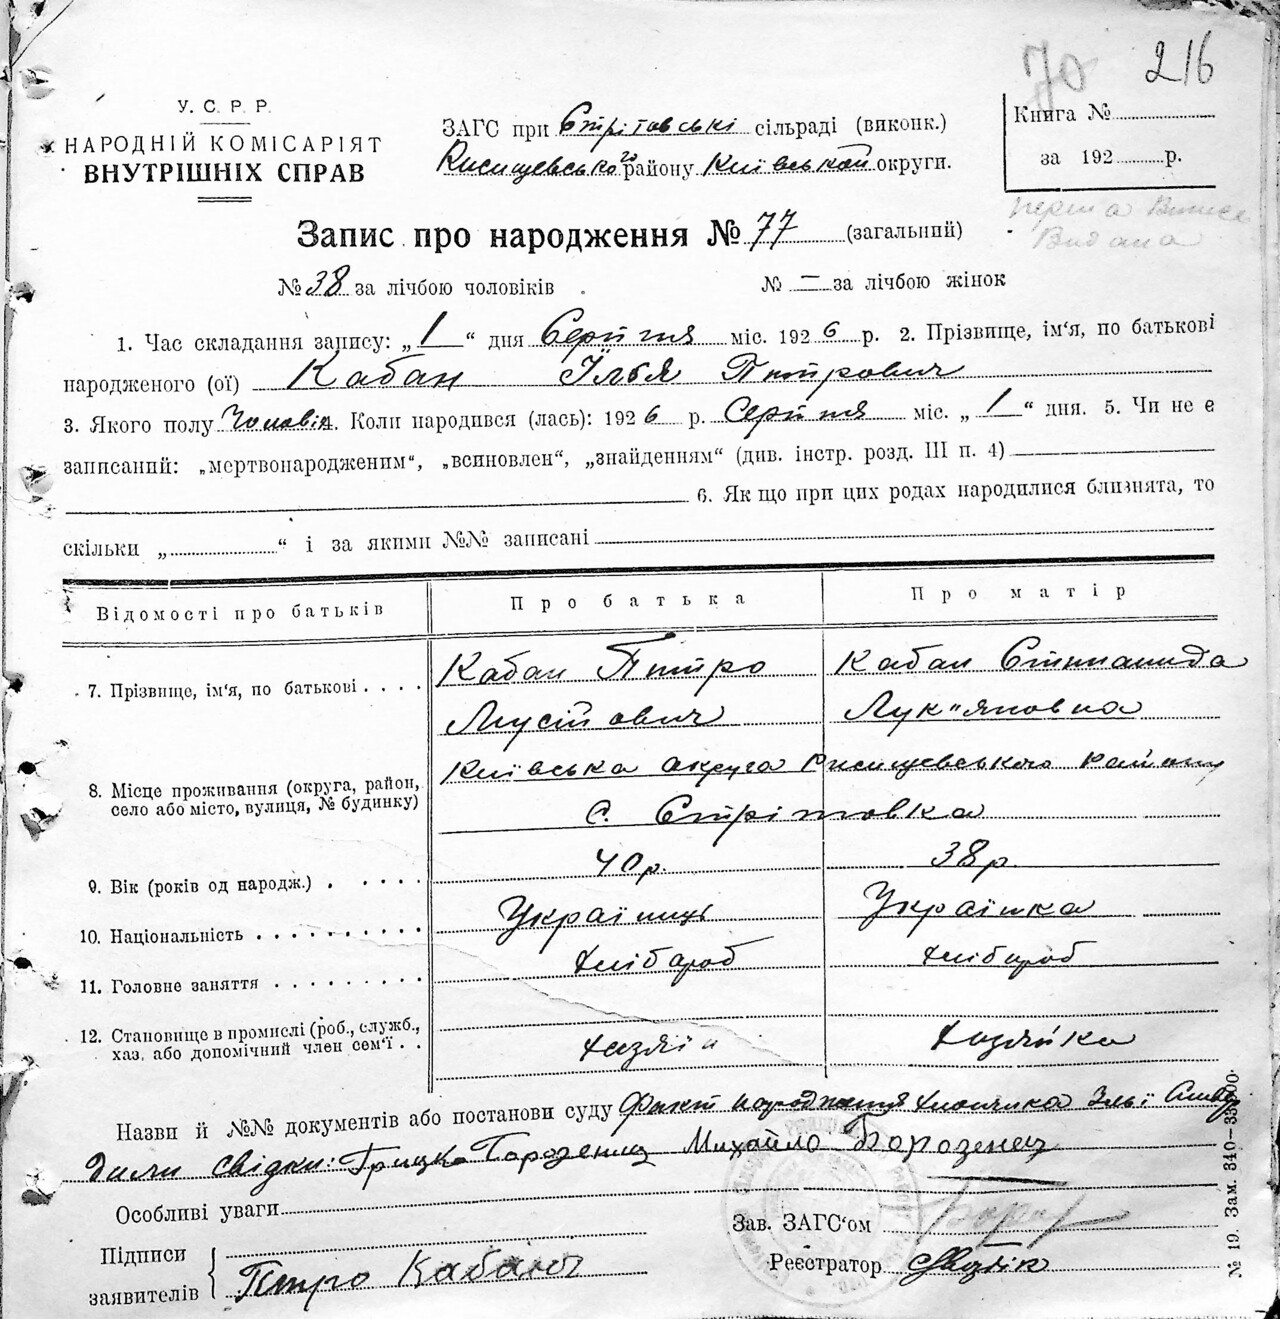 70 216
У. С. Р. Р.
НАРОДНІЙ КОМІСАРІЯТ
ВНУТРІШНІХ СПРАВ
ЗАГС при Стрітовські сільраді (виконк.)
району Київській округи.
Книга №
за 192 р.
перша
Видана
Запис про народження № 77 (загальний)
№ 38 за лічбою чоловіків № — за лічбою жінок
1. Час складання запису: „ 1 “ дня Серпня міс. 192 6 р. 2. Прізвище, ім'я, по батькові
народженого (ої) Кабан Ілья Петрович
3. Якого полу Чоловіч. Коли народився (лась): 192 6 р. Серпня міс. „ 1 “ дня. 5. Чи не є
записаний: „мертвонародженим“, „всиновлен“, „знайденням“ (див. інстр. розд. III п. 4)
6. Як що при цих родах народилися близнята, то
скільки „ “ і за якими №№ записані
Відомості про батьків Про батька Про матір
7. Прізвище, ім'я, по батькові Кабан Петро Кабан Степанида
Мусійович Лук"яновна
8. Місце проживання (округа, район, село або місто, вулиця, № будинку) Київська округа району
с. Стрітовка
9. Вік (років од народж.) 40 р. 38 р.
10. Національність Українець Українка
11. Головне заняття Хлібороб Хлібороб
12. Становище в промислі (роб., служб., хаз. або допомічний член сем'ї Хазяїн Хазяйка
Назви й №№ документів або постанови суду Факт народження хлопчика Ільї
дили свідки: Грицко Борозенец Михайло Борозенец
Особливі уваги
Зав. ЗАГС'ом
Підписи
заявителів Петро Кабанъ
Реєстратор
№ 19. Зам. 340—33000.